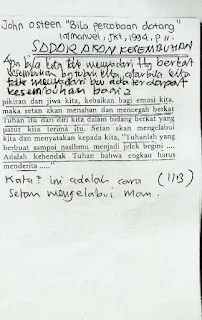 John osteen "Bila percobaan datang"
Immanuel, Jkt, 1994, p 11.
SODOR AKON KESEMBUHAN
Apa bila kita tdk menyadari ttg berkat
kesembuhan bagi kita, atau bila kita
tdk menyadari bw ada terdapat
kesembuhan bagi2
pikiran dan jiwa kita, kebaikan bagi emosi kita,
maka setan akan menahan dan mencegah berkat
Tuhan itu dari diri kita dalam bidang berkat yang
patut kita terima itu. Setan akan mengelabui
kita dan menyatakan kepada kita, "Tuhanlah yang
berbuat sampai nasibmu menjadi jelek begini ....
Adalah kehendak Tuhan bahwa engkau harus
menderita ....."
Kata? ini adalah cara (1113)
Setan mengelabui